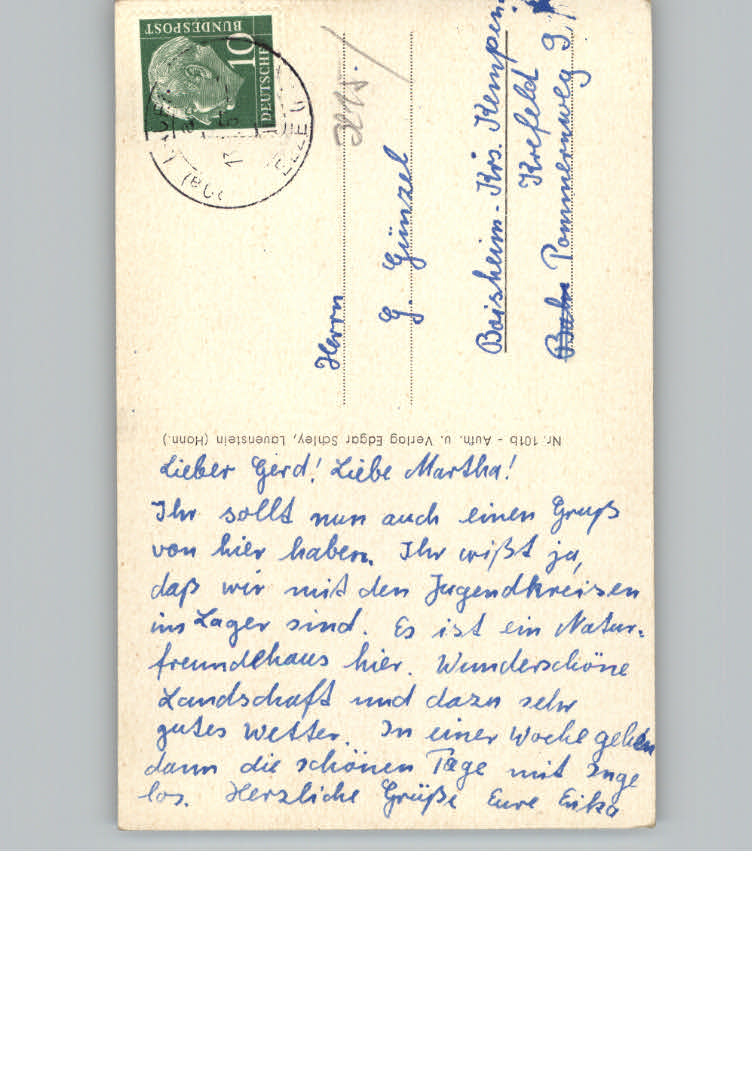 DEUTSCHE
BUNDESPOST
10
Herrn
G. Günzel
Boisheim-Krs. Kempen
Krefeld
Pommernweg 9
Nr. 101b - Aufn. u. Verlag Edgar Schley, Lauenstein (Hann.)
Lieber Gerd! Liebe Martha!
Ihr sollt nun auch einen Gruß
von hier haben. Ihr wißt ja,
daß wir mit den Jugendkreisen
im Lager sind. Es ist ein Natur-
freundehaus hier. Wunderschöne
Landschaft und dazu sehr
gutes Wetter. In einer Woche gehen
dann die schönen Tage mit Inge
los. Herzliche Grüße Eure Erika